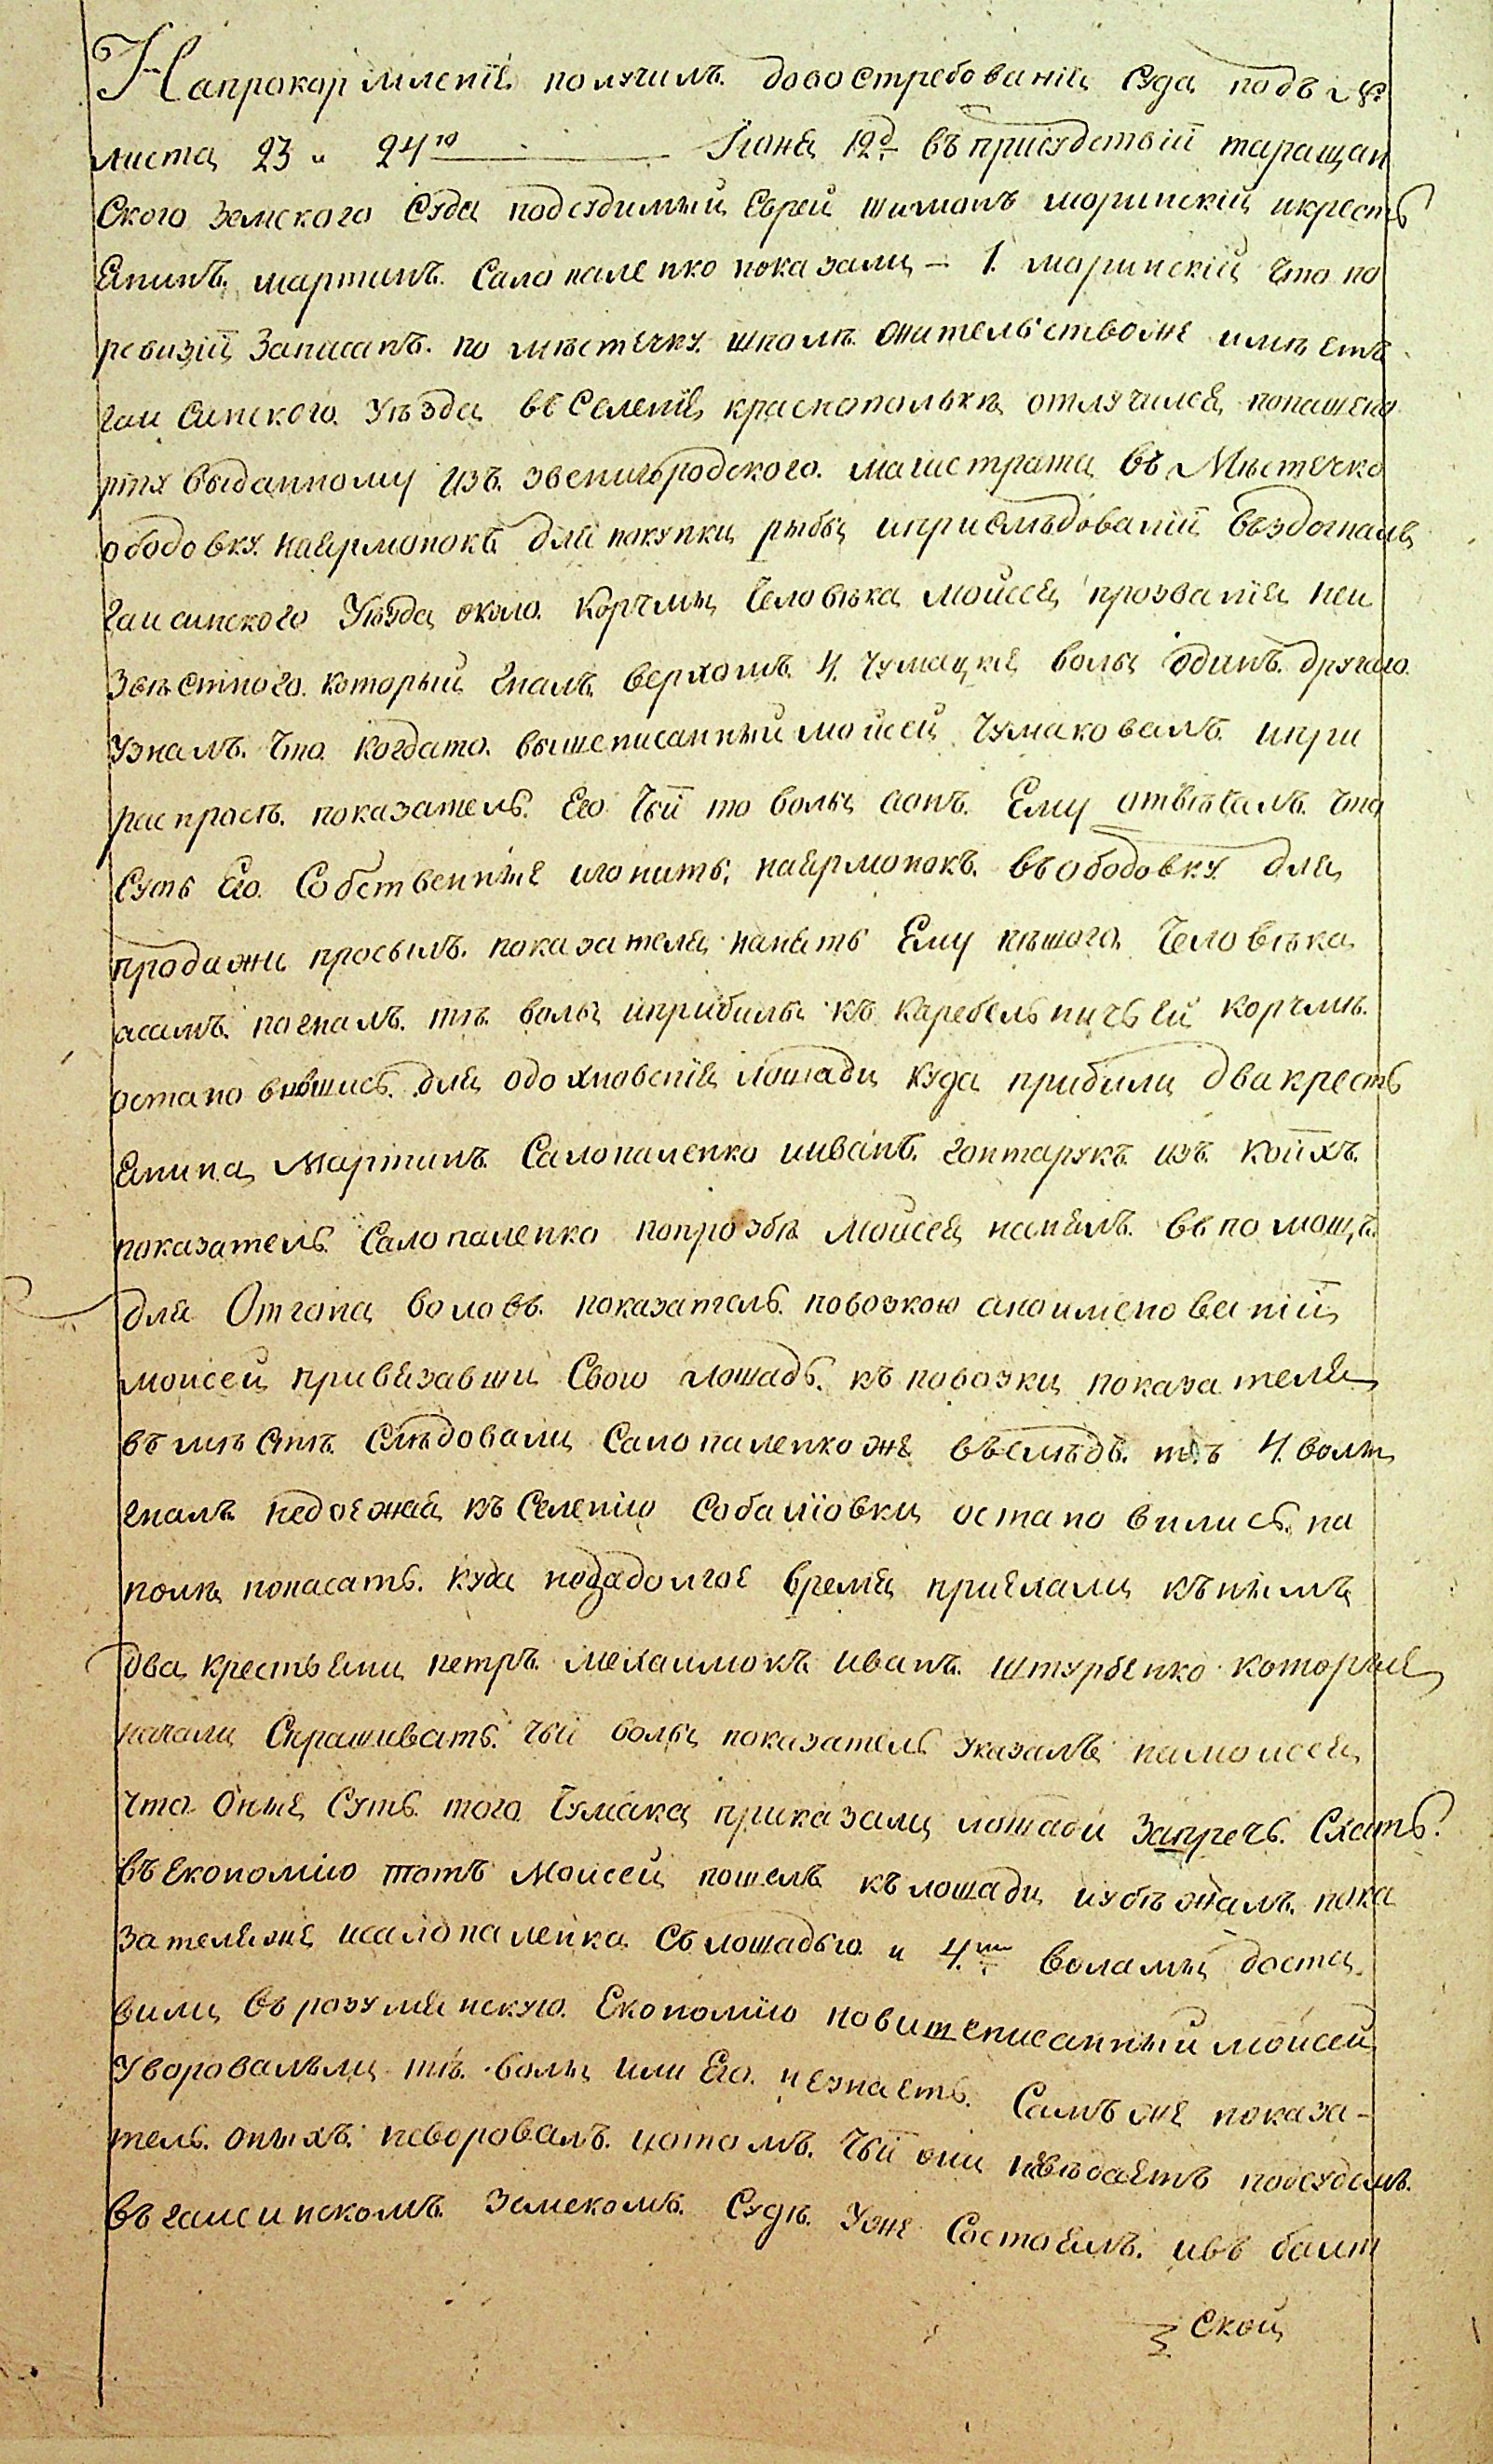 Напрокормленiе получилъ довостребованiя Суда подъ №
листа 23 и 24го Iюня 12д въ присудствiи таращан
Ского Земского Суда подсудимыи Еврей шимонъ моринскiй икресть
Янинъ мартинъ Салопаленко показали - 1. моринскiй что по
ревизiи Записанъ по мѣстечку шполѣ жительствоже имѣетъ
гаисинского уѣзда въ Селенiе краснополкѣ отлучился попашепо
рту выданному изъ звенигородского магистрата въ Мѣстечко
ободовку наярмонокъ для покупки рыбы ипри слѣдованiи въздогналъ
гаисинского Уѣзда около корчмы Человѣка Мойсея прозванiя неи
звѣстного который гналъ верхомъ 4 чумацкiе волы одинъ другаго
узналъ что когдато вышеписанный моисей чумаковалъ ипри
распросѣ показатель Его Чiи то волы аонъ Ему отвѣчалъ что
суть Его Собственные игонитъ наярмонокъ въ ободовку для
продажи просылъ показателя нанять Ему пѣшого Человѣка
асамъ погналъ тѣ волы иприбылы къ карбельничьей корчмѣ
остановывшись для одохновенiя лошади куда прибили два кресть
Янина Мартинъ Салопаленко ииванъ гонтарукъ изъ коихъ
показатель Салопаленко попрозбѣ Мойсея нанялъ въ помощь
для Отгона воловъ показатель повозкою анаименованiй
моисей привязавши Свою лошадь къ повозки показателя
въмѣстѣ слѣдовали Салопаленкоже въслѣдъ тѣ 4 волы
гналъ недоежая къ Селенiю Собалiовки остановились на
полѣ попасать куда незадолгое время приехали къ нымъ
два крестьяни петръ михаилюкъ иванъ штурбенко которые
начали Спрашивать чiи волы показатель указалъ намоисея
что оные суть того Чумака приказали лошади Запречь Ехать
въ Економiю тотъ Моисей пошелъ къ лошади иубѣжалъ пока
зателяже исалопаленка съ лошадью и 4ми воламы доста
вили въ розумянскую Економiю новишеписанный мойсей
Уворовалъли тѣ волы или Его незнаетъ Самъже показа-
тель оныхъ неворовалъ иотомъ чiи они невѣдаетъ подсудомъ
въ гаисинскомъ Земскомъ Судѣ Уже состоялъ ивъ балт
ской